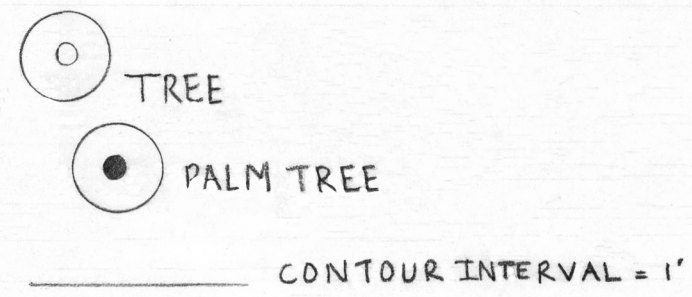 TREE
PALM TREE
CONTOUR INTERVAL = 1'